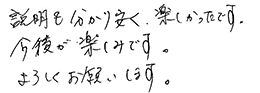 説明も分かり安く、楽しかったです。
今後が楽しみです。
よろしくお願いします。